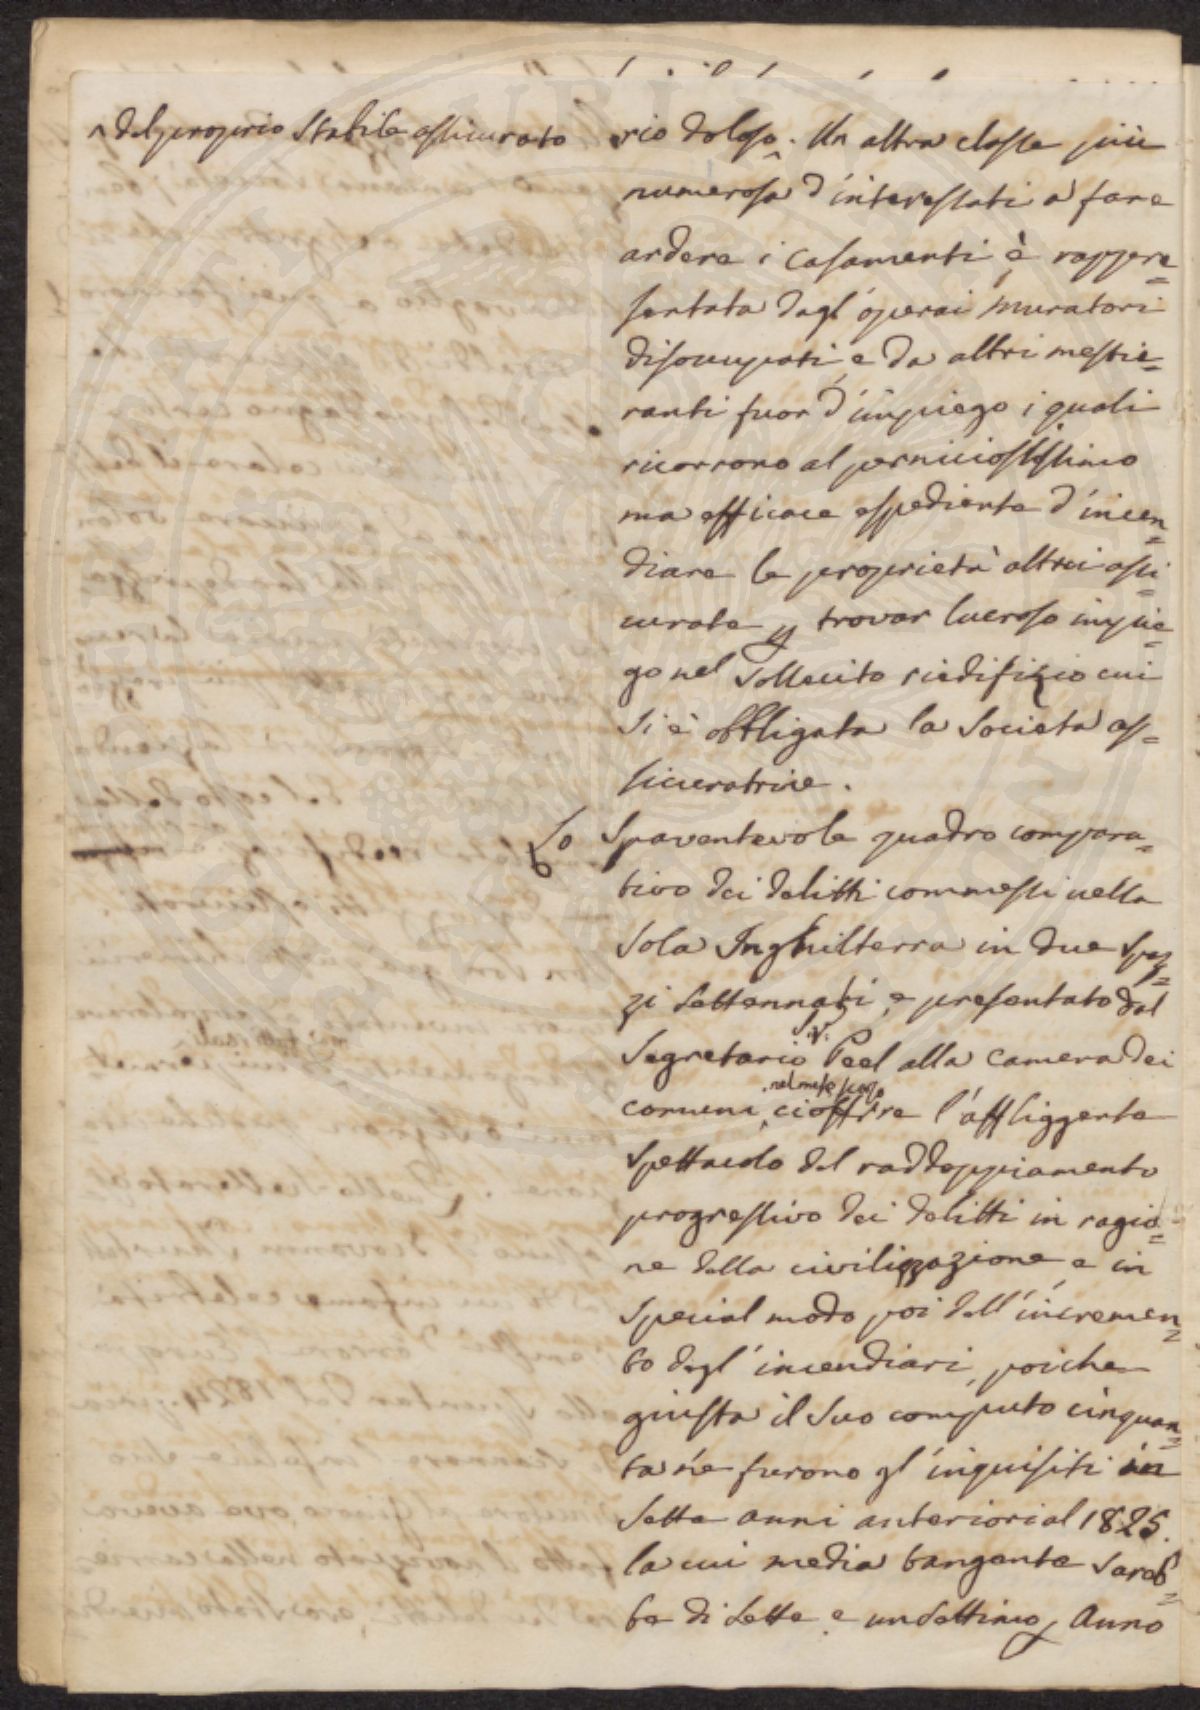 ^ del proprio Stabile assicurato
rio doloso ^. Un altra classe più
numerosa d'interessati a fare
ardere i casamenti è rappre=
sentata dagl'operai muratori
disoccupati, e da altri mestie=
ranti fuor d'impiego i quali
ricorrono al perniciosissimo
ma efficace espediente d'incen=
diare le proprietà altrui assi=
curate p trovar lucroso impie=
go nel sollecito riedifizio cui
si è obbligata la Società as=
sicuratrice.
Lo Spaventevole quadro compara=
tivo dei delitti commessi nella
Sola Inghilterra in due Spaz=
zi Settennali, e presentato dal
Segretario Sir Peel alla Camera dei
comuni, ci offrire l'affliggente
Spettacolo del raddoppiamento
progressivo dei delitti in ragio=
ne della civilizzazione, e in
Special modo poi dell'incremen=
to degl'incendiari, poiche
giusta il Suo computo cinquan=
ta ne furono gl'inquisiti in
Sette anni anteriori al 1825.
la cui media tangente Sareb=
be di Sette, e un Settimo p Anno